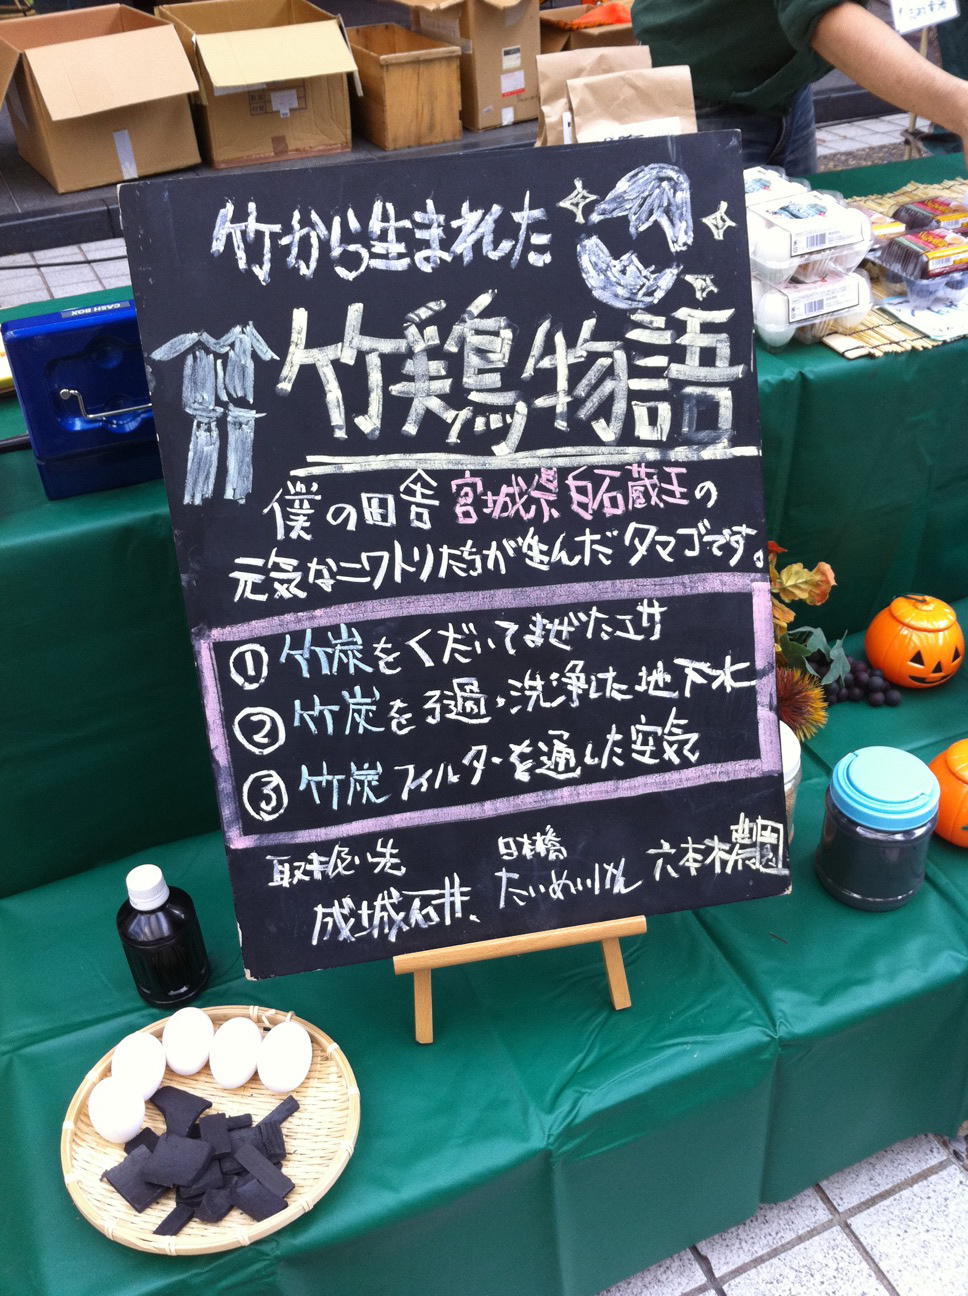 竹から生まれた
竹鶏物語
僕の田舎 宮城県白石蔵王の
元気なニワトリたちが生んだタマゴです。
① 竹炭をくだいてまぜたエサ
② 竹炭をろ過・洗浄した地下水
③ 竹炭フィルターを通した空気
取扱い先
成城石井、
日本橋
たいめいけん
六本木農園
CASH BOX